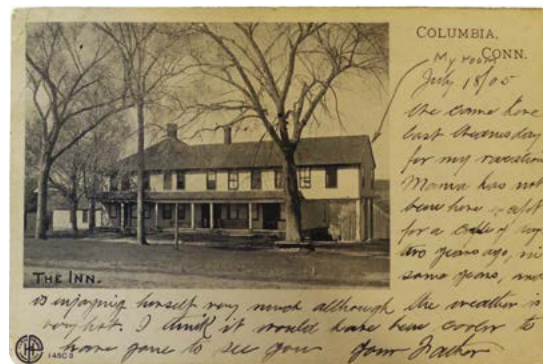 COLUMBIA,
CONN.
My room
July 18/05
We came here
last Wednesday
for my vacation
Mama has not
been here except
for a couple of
two years ago, in
some years, and
THE INN.
is enjoying herself very much although the weather is
very hot. I think it would have been cooler to
have gone to see you your Father